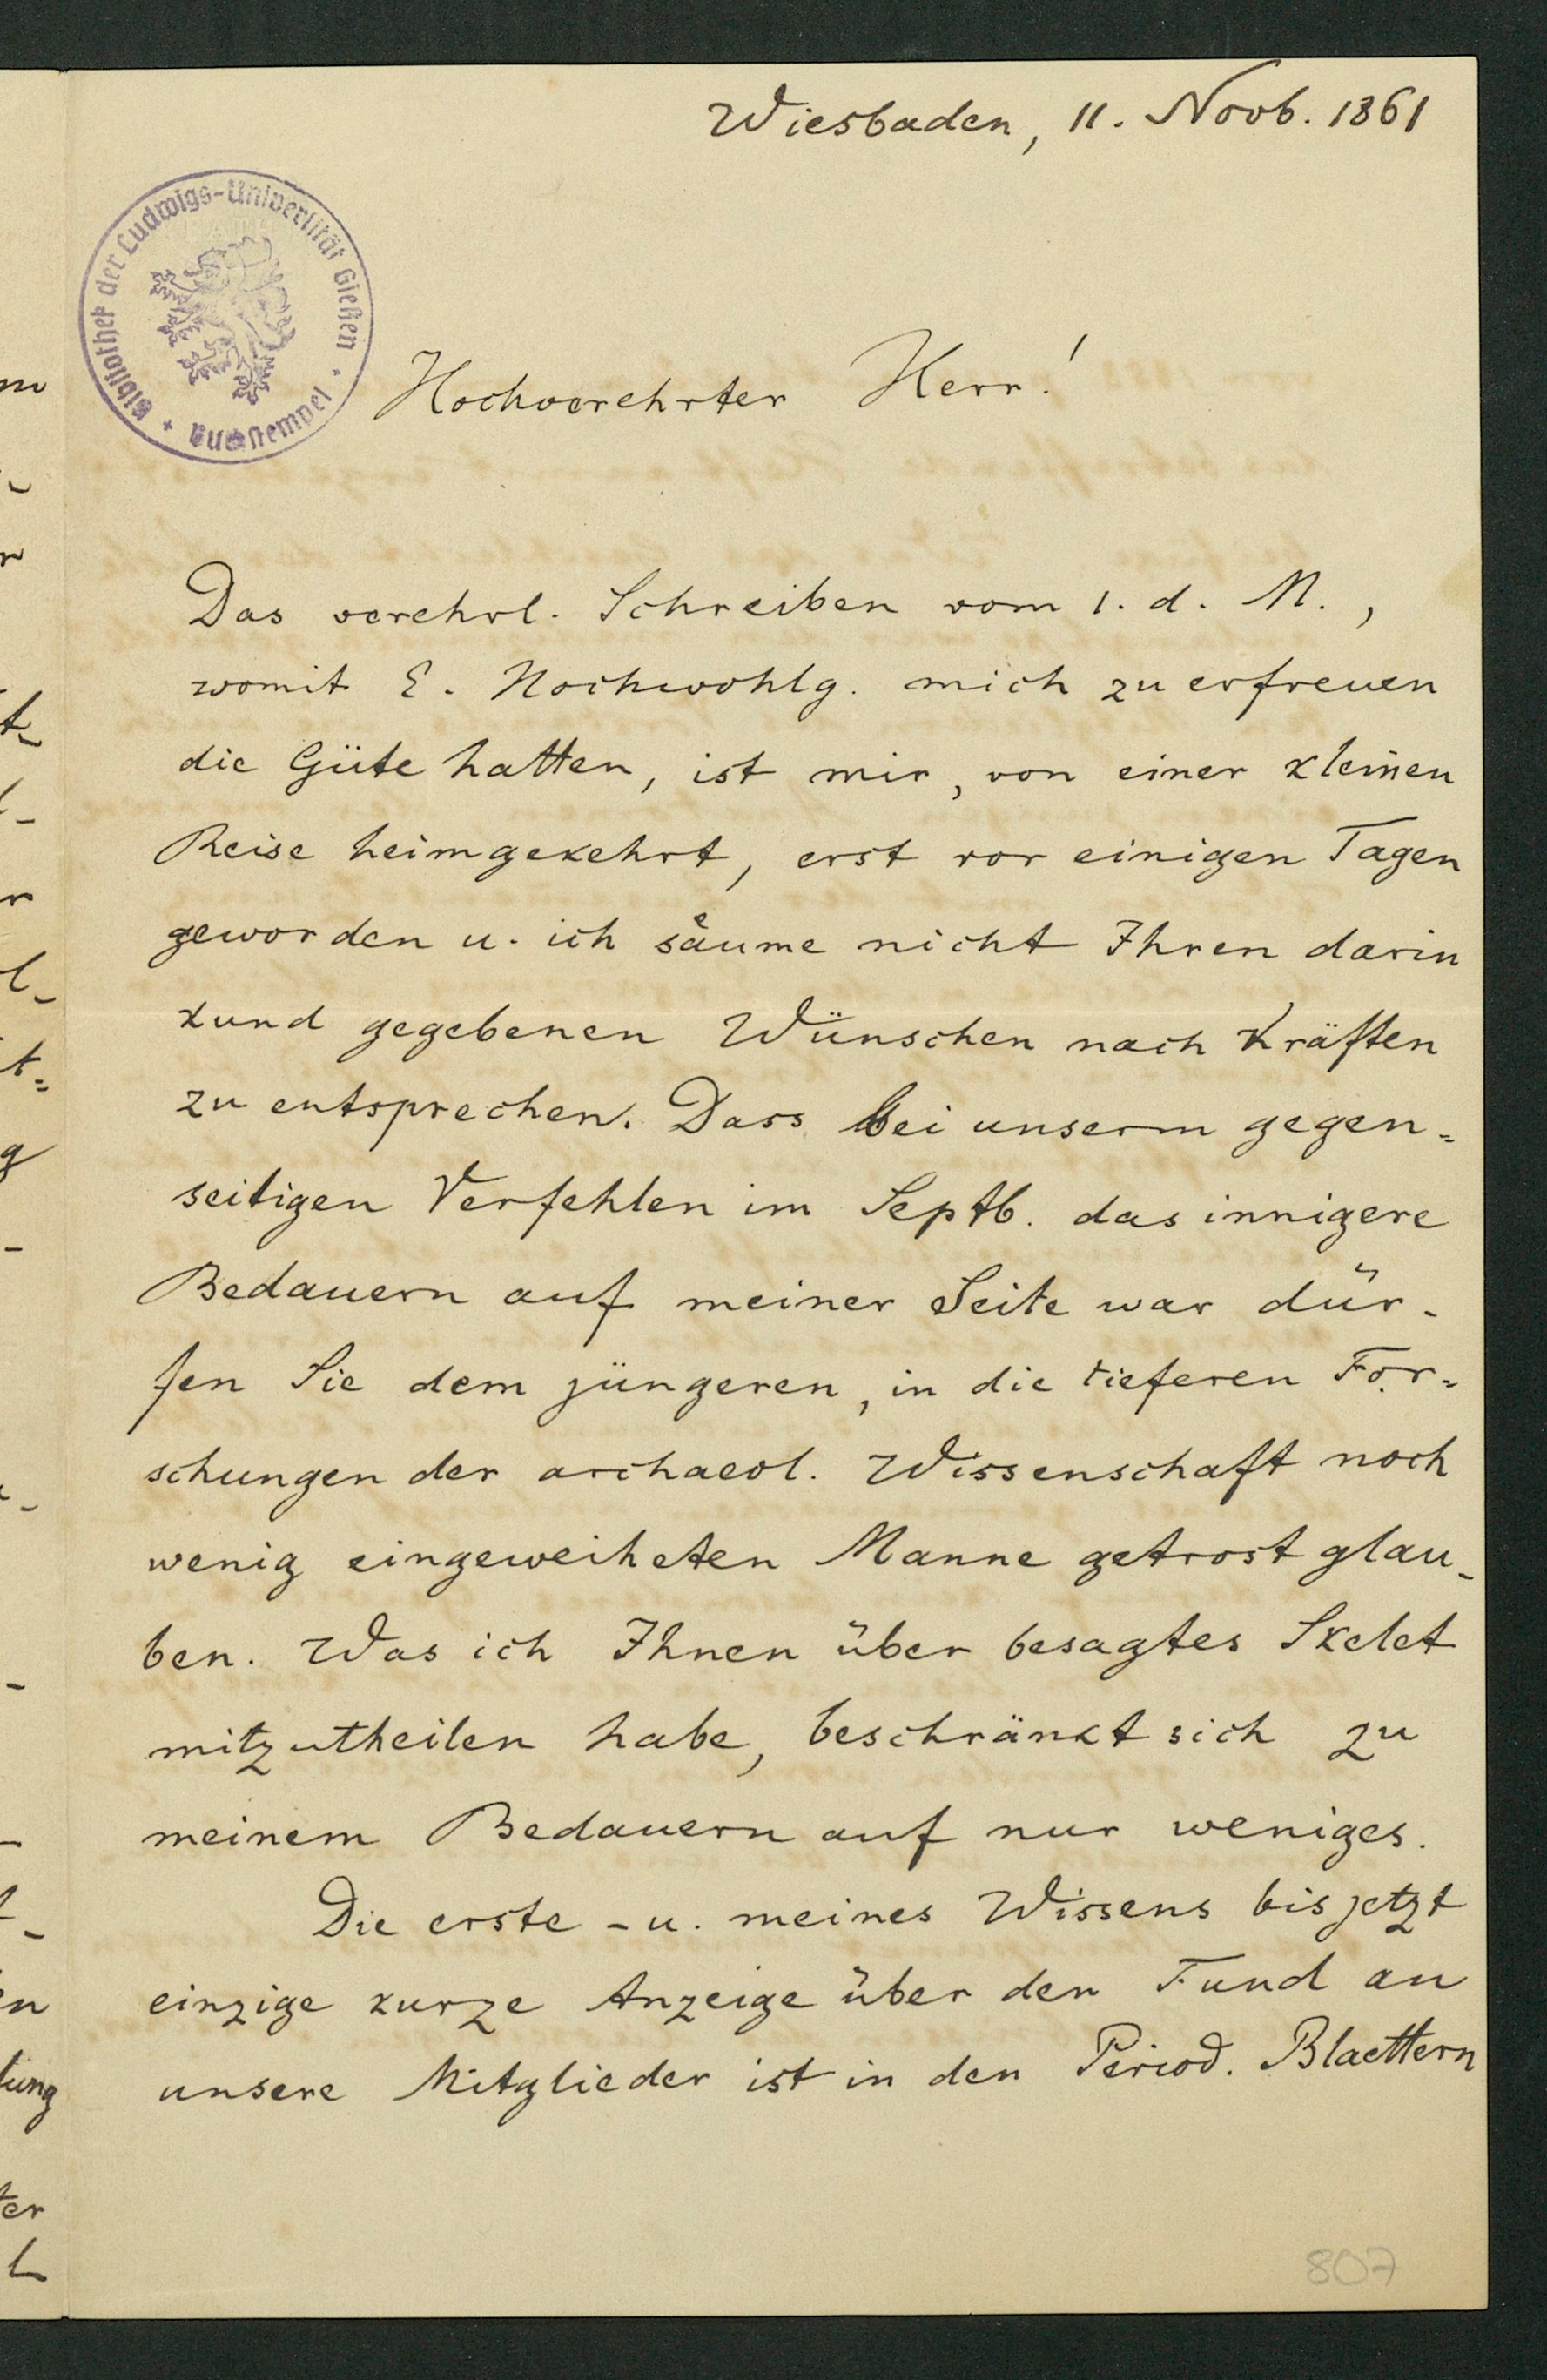 Wiesbaden, 11. Novb. 1861
Bibliothek der Ludwigs-Universität Gießen
Hochverehrter Herr!
Das verehrl. Schreiben vom 1. d. M.,
womit E. Hochwohlg. mich zu erfreuen
die Güte hatten, ist mir, von einer kleinen
Reise heimgekehrt, erst vor einigen Tagen
geworden u. ich säume nicht Ihren darin
kund gegebenen Wünschen nach Kräften
zu entsprechen. Dass bei unserm gegen=
seitigen Verfehlen im Septb. das innigere
Bedauern auf meiner Seite war dür-
fen Sie dem jüngeren, in die tieferen For=
schungen der archaeol. Wissenschaft noch
wenig eingeweiheten Manne getrost glau-
ben. Was ich Ihnen über besagtes Skelet
mitzutheilen habe, beschränkt sich zu
meinem Bedauern auf nur weniges.
Die erste - u. meines Wissens bis jetzt
einzige kurze Anzeige über den Fund an
unsere Mitglieder ist in den Period. Blaettern
807